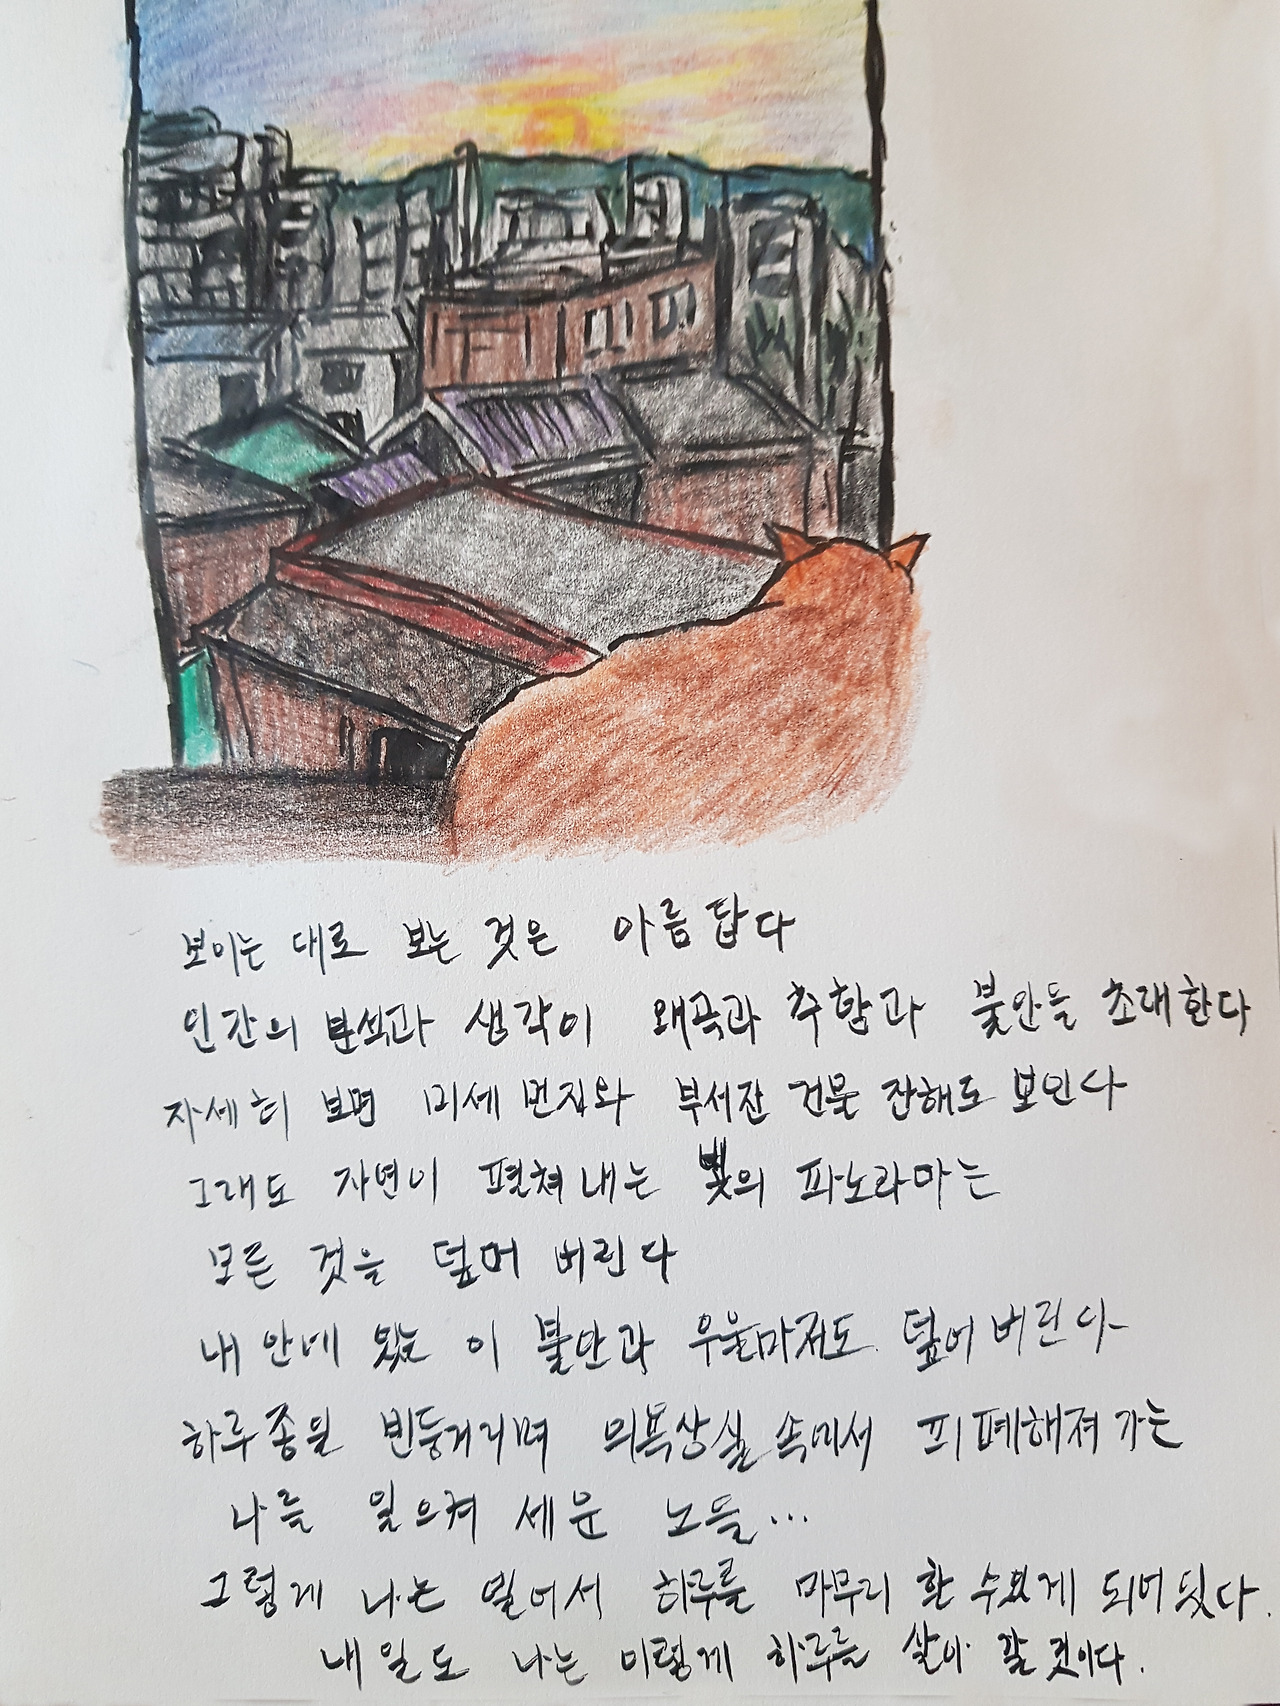 보이는 대로 보는 것은 아름답다
인간의 분석과 생각이 왜곡과 추함과 불안들 초대한다
자세히 보면 미세 먼지와 부서진 건물 잔해도 보인다
그래도 자연이 펼쳐 내는 빛의 파노라마는
모든 것을 덮어 버린다
내 안에 있는 이 불안과 우울마저도 덮어 버린다
하루 종일 빈둥거리며 의욕상실 속에서 피폐해져 가는
나를 일으켜 세운 노을...
그렇게 나는 일어서 하루를 마무리 할 수 있게 되어 있다.
내일도 나는 이렇게 하루를 살아 갈 것이다.